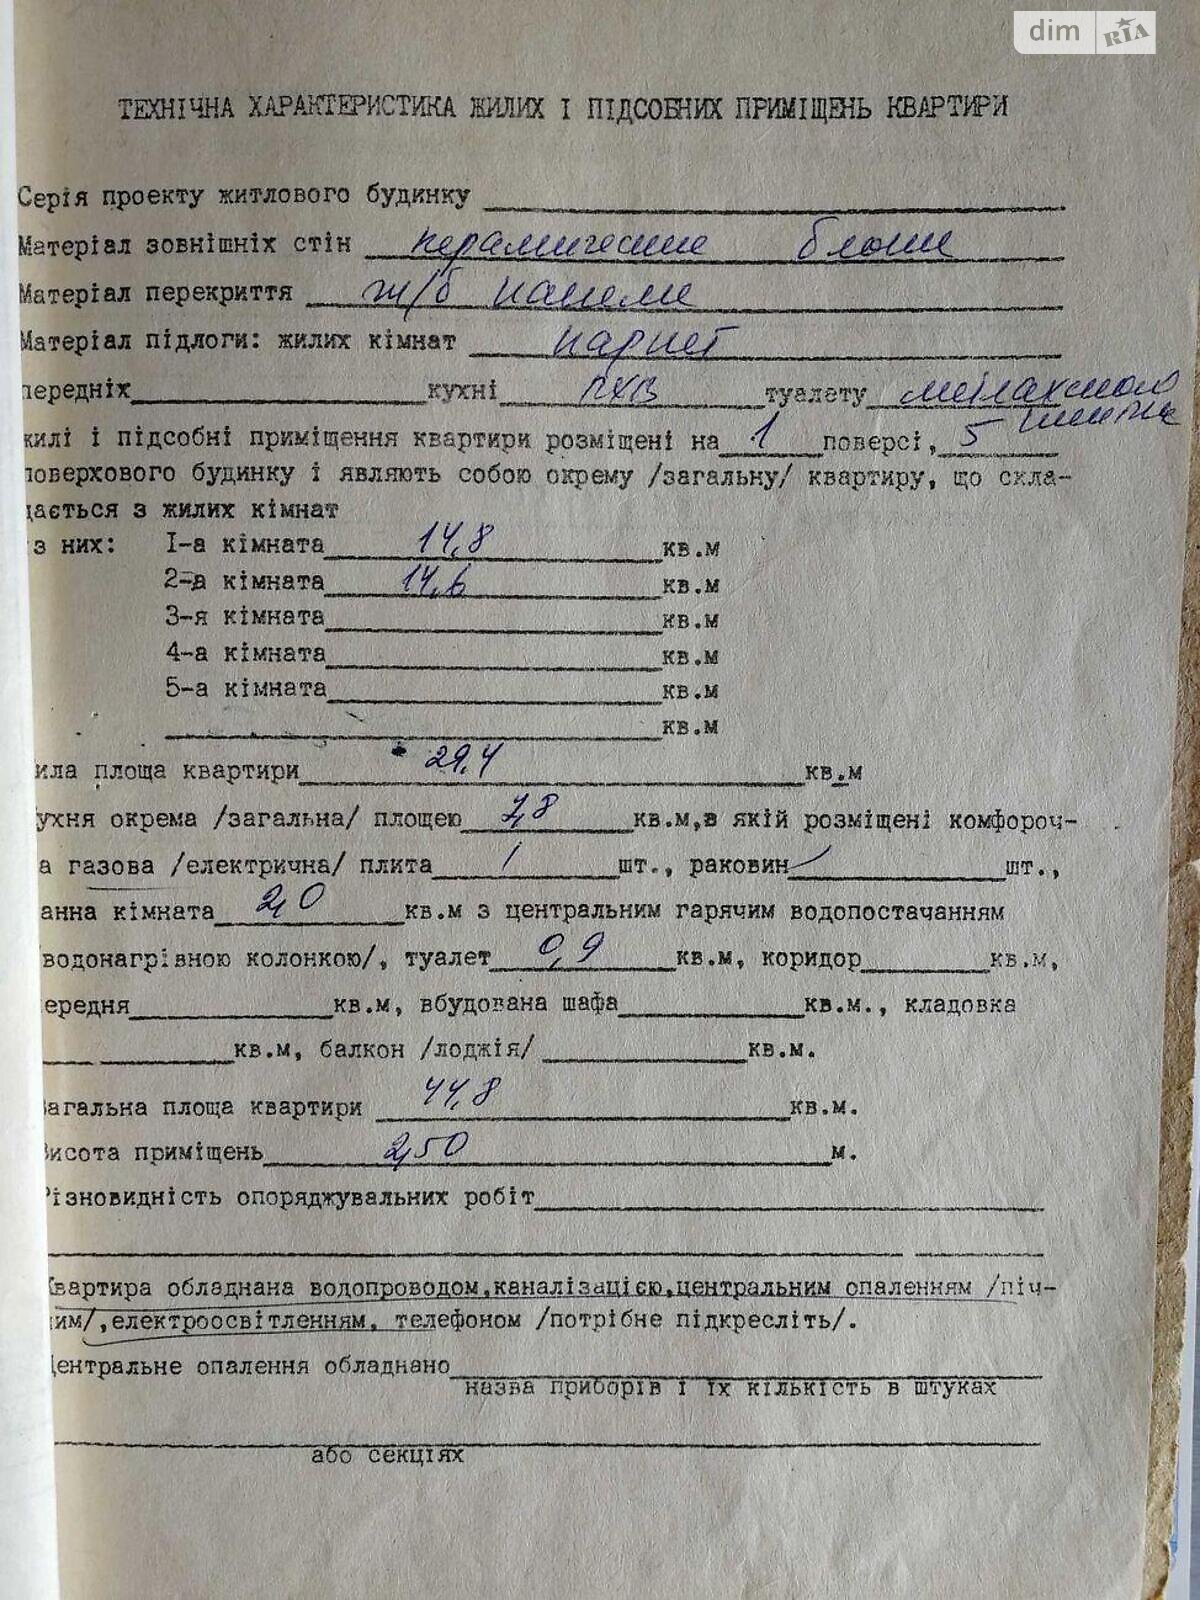 dim RIA
ТЕХНІЧНА ХАРАКТЕРИСТИКА ЖИЛИХ І ПІДСОБНИХ ПРИМІЩЕНЬ КВАРТИРИ
Серія проекту житлового будинку
Матеріал зовнішніх стін керамические блоки
Матеріал перекриття ж/б панели
Матеріал підлоги: жилих кімнат паркет
передніх кухні ПХВ туалету метлахская
плитка
килі і підсобні приміщення квартири розміщені на 1 поверсі, 5
поверхового будинку і являють собою окрему /загальну/ квартиру, що скла-
дається з жилих кімнат
з них: І-а кімната 14,8 кв.м
2-а кімната 14,6 кв.м
3-я кімната кв.м
4-а кімната кв.м
5-а кімната кв.м
кв.м
ила площа квартири 29,4 кв.м
ухня окрема /загальна/ площею 7,8 кв.м,в якій розміщені комфороч-
а газова /електрична/ плита 1 шт., раковин 1 шт.,
анна кімната 2,0 кв.м з центральним гарячим водопостачанням
водонагрівною колонкою/, туалет 0,9 кв.м, коридор кв.м,
ередня кв.м, вбудована шафа кв.м., кладовка
кв.м, балкон /лоджія/ кв.м.
Загальна площа квартири 44,8 кв.м.
Висота приміщень 2,50 м.
Різновидність опоряджувальних робіт
Квартира обладнана водопроводом,каналізацією,центральним опаленням /піч-
им/,електроосвітленням, телефоном /потрібне підкресліть/.
Центральне опалення обладнано
назва приборів і їх кількість в штуках
або секціях